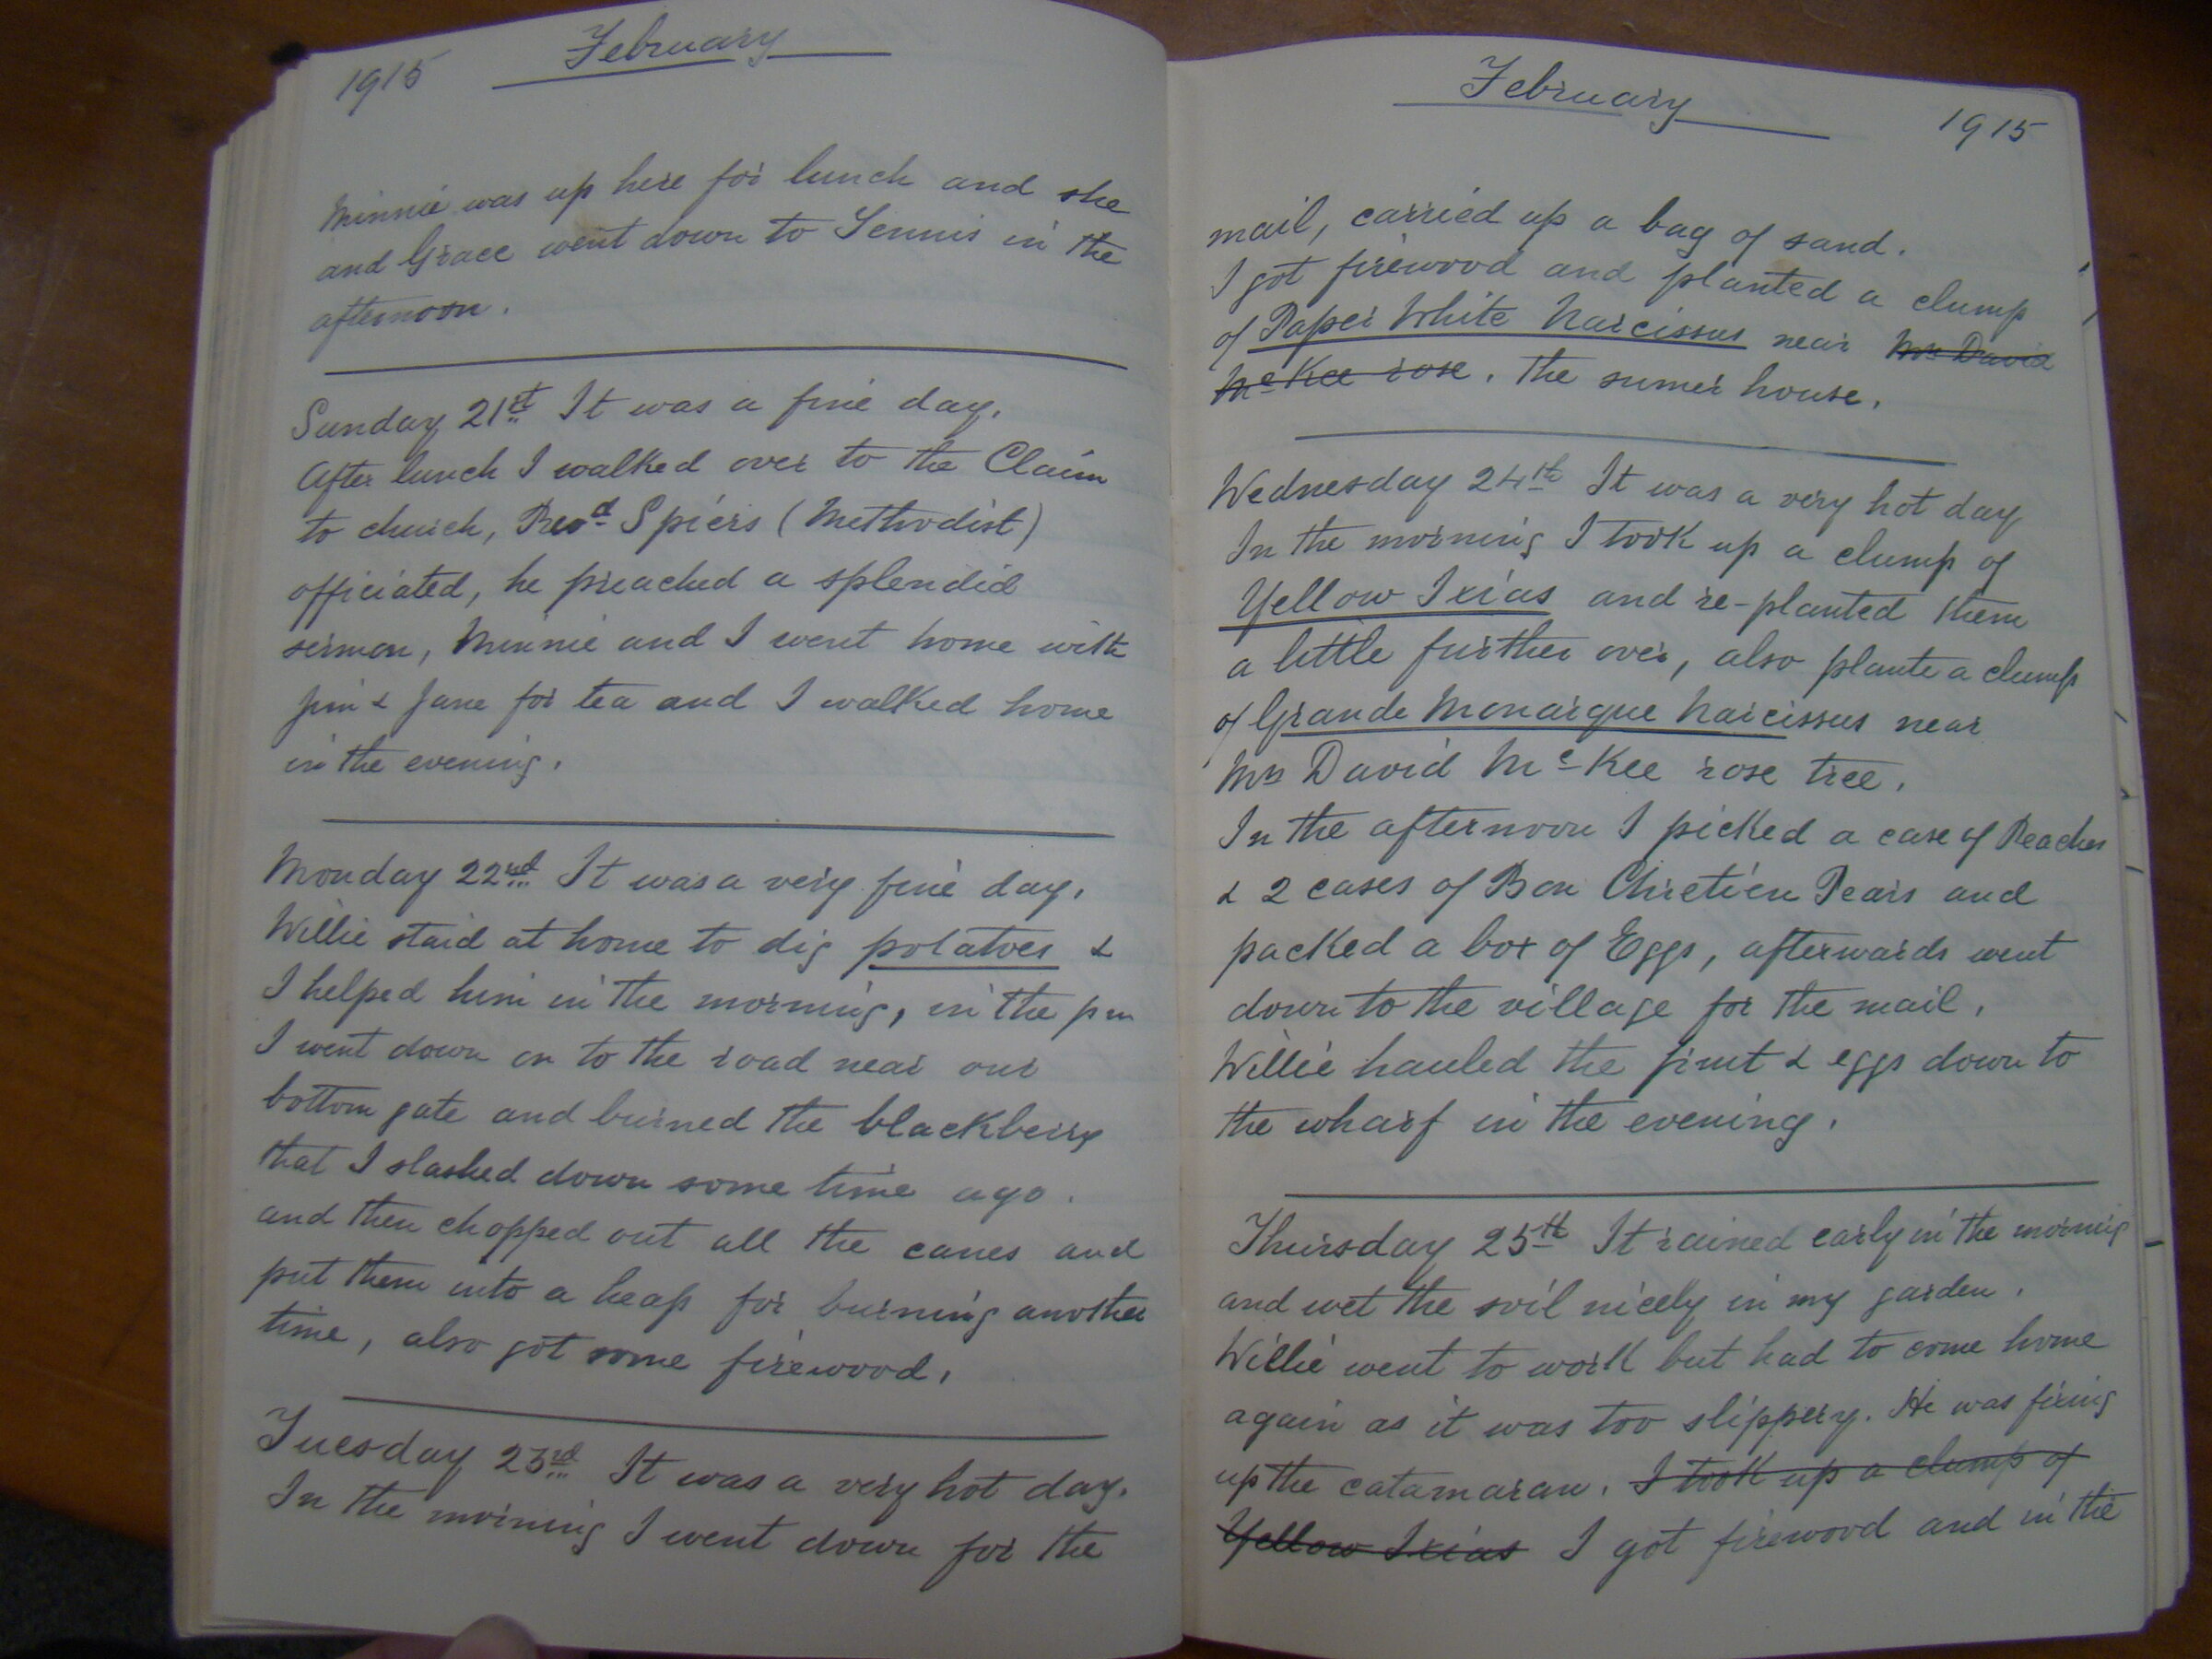 1915 February
Minnie was up here for lunch and she
and Grace went down to Tennis in the
afternoon.
Sunday 21st It was a fine day.
After lunch I walked over to the Claim
to church, Revd Spiers (Methodist)
officiated, he preached a splendid
sermon, Minnie and I went home with
Jim & Jane for tea and I walked home
in the evening.
Monday 22nd It was a very fine day.
Willie staid at home to dig potatoes &
I helped him in the morning, in the pm
I went down on to the road near our
bottom gate and burned the blackberry
that I slashed down some time ago.
and then chopped out all the canes and
put them into a heap for burning another
time, also got some firewood.
Tuesday 23rd It was a very hot day.
In the morning I went down for the
February 1915
mail, carried up a bag of sand.
I got firewood and planted a clump
of Paper White Narcissus near Mrs David
McKee rose. The sumer house.
Wednesday 24th It was a very hot day
In the morning I took up a clump of
Yellow Ixias and re-planted them
a little further over, also plante a clump
of Grande Monarque Narcissus near
Mrs David McKee rose tree.
In the afternoon I picked a case of Peaches
& 2 cases of Bon Chretien Pears and
packed a box of Eggs, afterwards went
down to the village for the mail.
Willie hauled the fruit & eggs down to
the wharf in the evening.
Thursday 25th It rained early in the morning
and wet the soil nicely in my garden.
Willie went to work but had to come home
again as it was too slippery. He was fixing
up the catamaran. I took up a clump of
Yellow Ixias I got firewood and in the